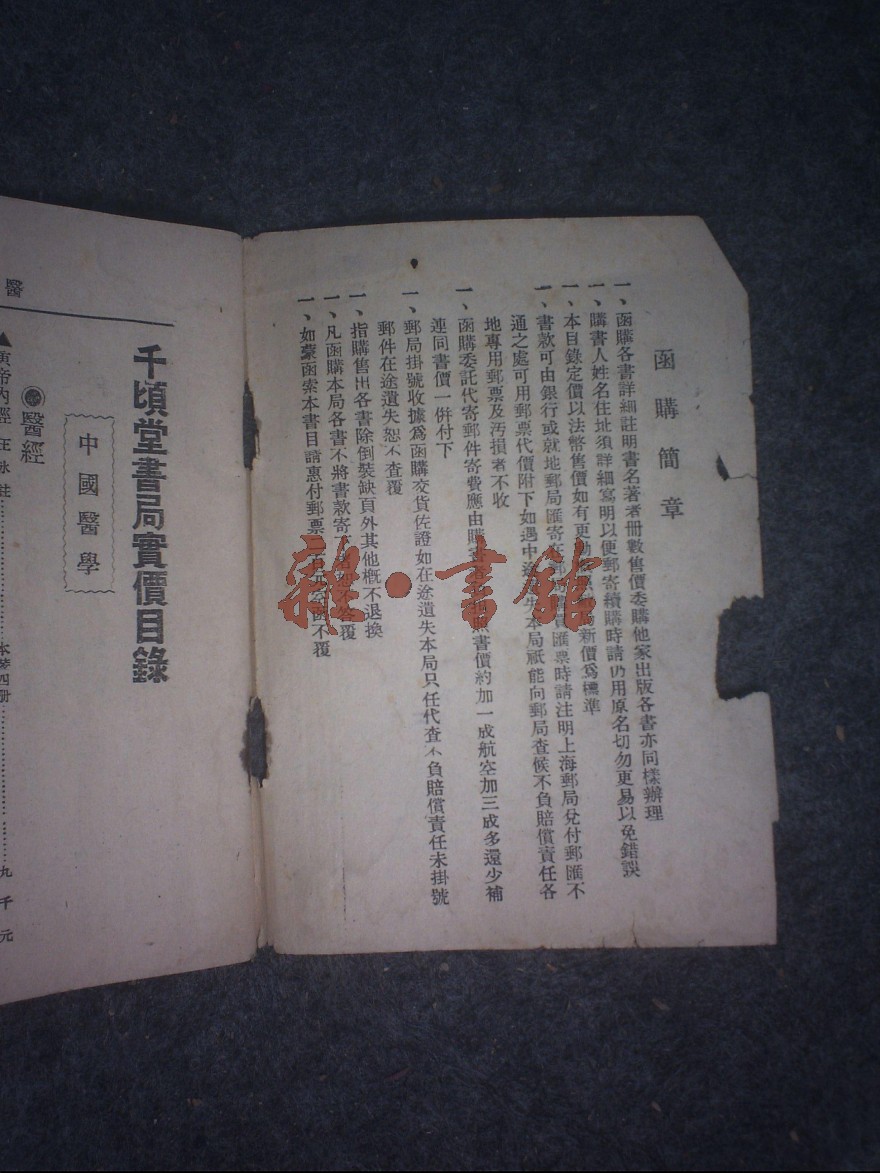 函購簡章
一、函購各書詳細註明書名著者冊數售價委購他家出版各書亦同樣辦理
一、購書人姓名住址須詳細寫明以便郵寄續購時請仍用原名切勿更易以免錯誤
一、本目錄定價以法幣售價如有更動 新價爲標準
一、書款可由銀行或就地郵局匯寄在 匯票時請注明上海郵局兌付郵匯不
通之處可用郵票代價附下如遇中 失本局祇能向郵局查候不負賠償責任各
地專用郵票及污損者不收
一、函購委託代寄郵件寄費應由購書 照書價約加一成航空加三成多還少補
連同書價一併付下
一、郵局掛號收據爲函購交貨佐證如在途遺失本局只任代查不負賠償責任未掛號
郵件在途遺失恕不查覆
一、指購售出各書除倒裝缺頁外其他概不退換
一、凡函購本局各書不將書款寄 覆
一、如蒙函索本書目請惠付郵票 函不覆
千頃堂書局實價目錄
中國醫學
醫
醫經
▲黃帝內經 王冰註 本裝四册 九千元
雜·書館